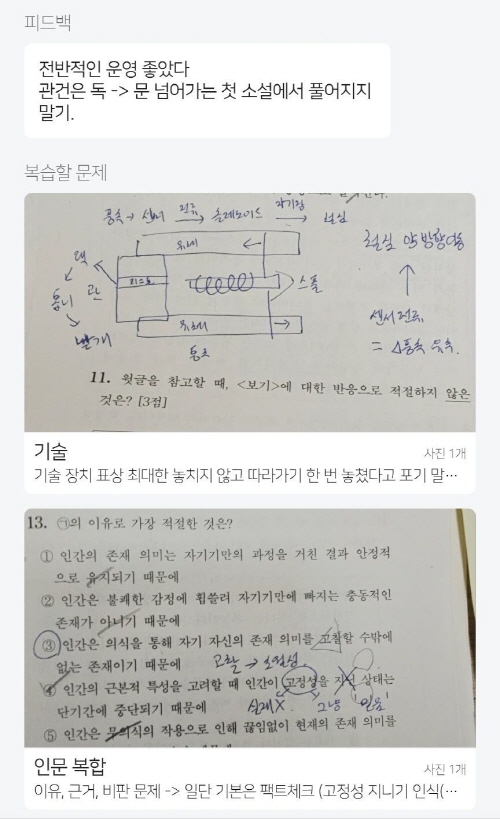 피드백
전반적인 운영 좋았다
관건은 독 -> 문 넘어가는 첫 소설에서 풀어지지
말기.
복습할 문제
풍속 → 센서 전류 → 솔레노이드 자기장 → 철심
유체
랙
톱니
관
피스톤
스풀
날개
유체
철심 양방향 이동
센서 전류
= △풍속 유속.
11. 윗글을 참고할 때, <보기>에 대한 반응으로 적절하지 않은
것은? [3점]
기술
사진 1개
기술 장치 표상 최대한 놓치지 않고 따라가기 한 번 놓쳤다고 포기 말…
13. ㉠의 이유로 가장 적절한 것은?
① 인간의 존재 의미는 자기기만의 과정을 거친 결과 안정적
으로 유지되기 때문에
② 인간은 불쾌한 감정에 휩쓸려 자기기만에 빠지는 충동적인
존재가 아니기 때문에
③ 인간은 의식을 통해 자기 자신의 존재 의미를 고찰할 수밖에
없는 존재이기 때문에
고찰 →
④ 인간의 근본적 특성을 고려할 때 인간이 고정성을 지닌 상태는
단기간에 중단되기 때문에
실제 X
그냥 믿음
⑤ 인간은 무의식의 작용으로 인해 끊임없이 현재의 존재 의미를
인문 복합
사진 1개
이유, 근거, 비판 문제 -> 일단 기본은 팩트체크 (고정성 지니기 인식(…